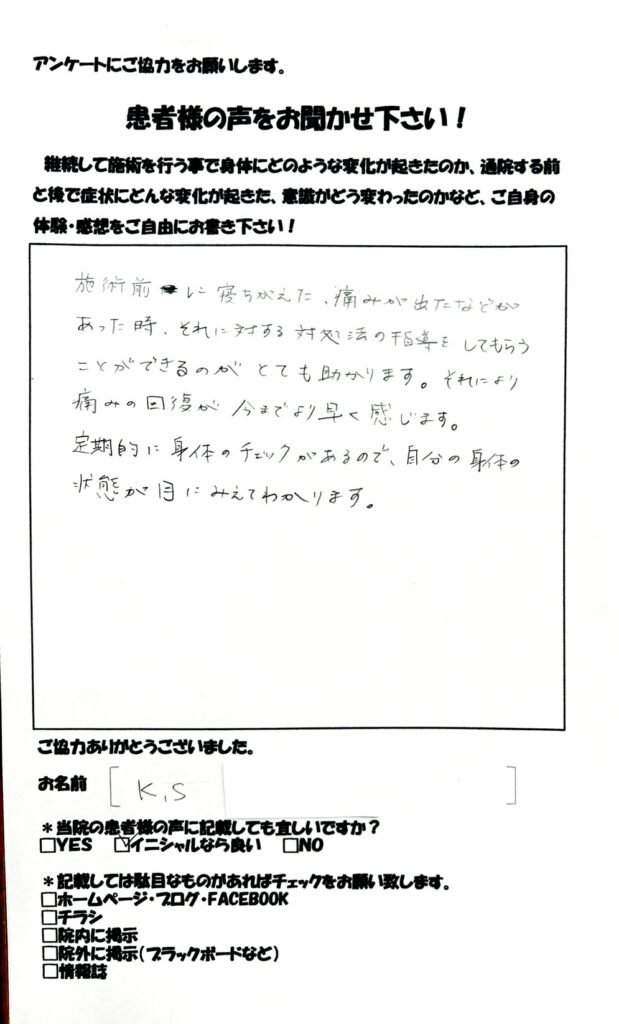 アンケートにご協力をお願いします。
患者様の声をお聞かせ下さい！
継続して施術を行う事で身体にどのような変化が起きたのか、通院する前
と後で症状にどんな変化が起きた、意識がどう変わったのかなど、ご自身の
体験・感想をご自由にお書き下さい！
施術前に寝ちがえた、痛みが出たなどが
あった時、それに対する対処法の指導をしてもらう
ことができるのがとても助かります。それにより
痛みの回復が今までより早く感じます。
定期的に身体のチェックがあるので、自分の身体の
状態が目にみえてわかります。
ご協力ありがとうございました。
お名前 [ K.S ]
＊当院の患者様の声に記載しても宜しいですか？
□YES ☑イニシャルなら良い □NO
＊記載しては駄目なものがあればチェックをお願い致します。
□ホームページ・ブログ・FACEBOOK
□チラシ
□院内に掲示
□院外に掲示（ブラックボードなど）
□情報誌